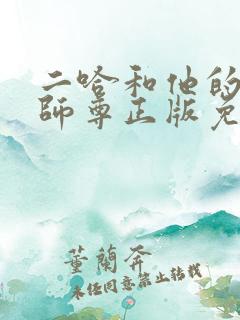 二哈和他的
師尊正版免
董蘭奔
未经同意禁止转载